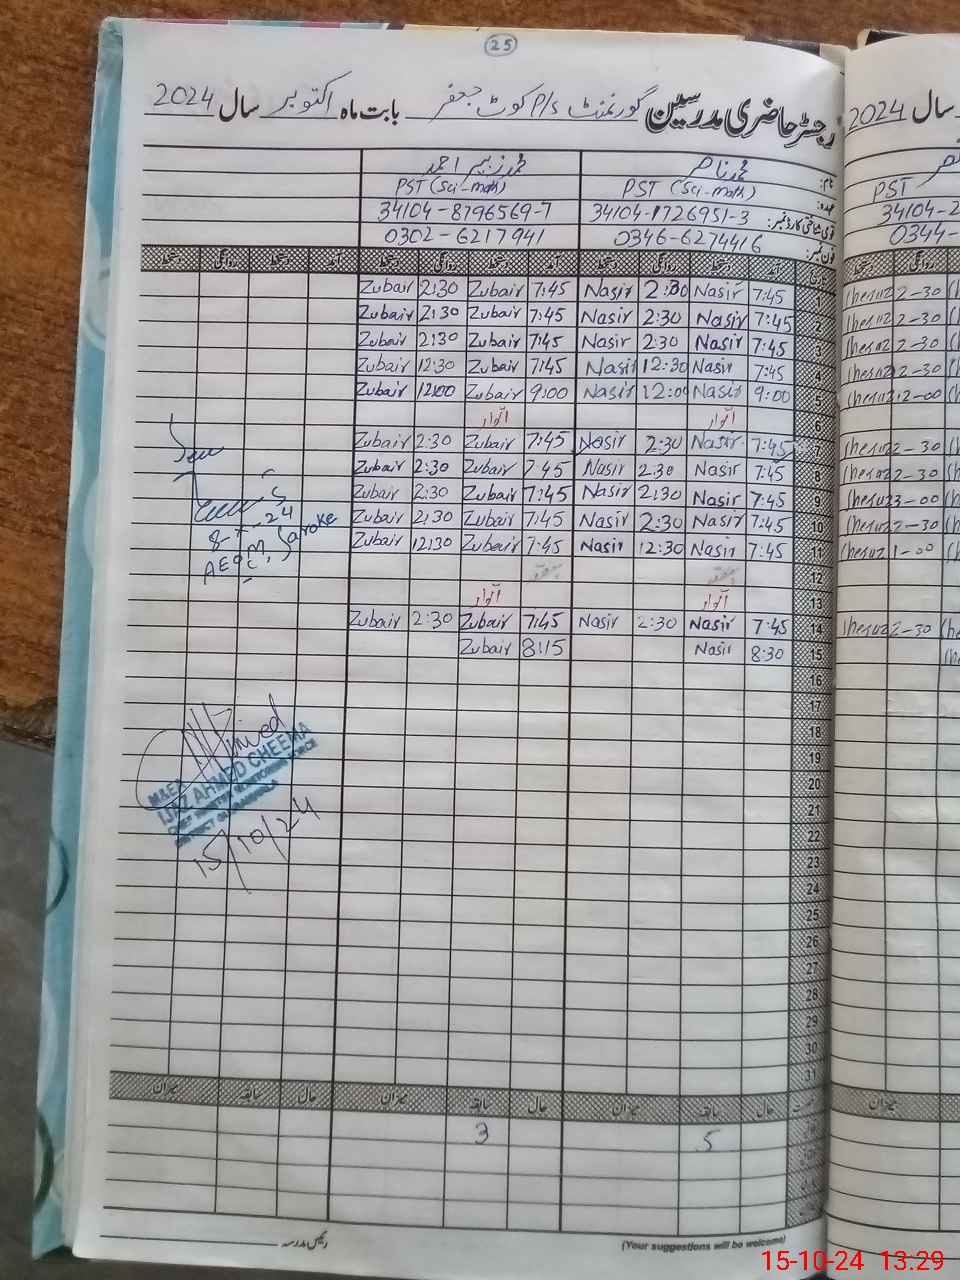 25
رجسٹر حاضری مدرسین گورنمنٹ P/S کوٹ جعفر بابت ماہ اکتوبر سال 2024
نام: محمد ناصر محمد زبیر احمد
عہدہ: PST (Sci-math) PST (Sci-math)
قومی شناختی کارڈ نمبر: 34104-1726951-3 34104-8796569-7
فون نمبر: 0346-6274416 0302-6217941
آمد دستخط روانگی دستخط آمد دستخط روانگی دستخط آمد دستخط روانگی دستخط
1 7:45 Nasir 2:30 Nasir 7:45 Zubair 2:30 Zubair
2 7:45 Nasir 2:30 Nasir 7:45 Zubair 2:30 Zubair
3 7:45 Nasir 2:30 Nasir 7:45 Zubair 2:30 Zubair
4 7:45 Nasir 12:30 Nasir 7:45 Zubair 12:30 Zubair
5 9:00 Nasir 12:00 Nasir 9:00 Zubair 12:00 Zubair
6 اتوار اتوار
7 7:45 Nasir 2:30 Nasir 7:45 Zubair 2:30 Zubair
8 7:45 Nasir 2:30 Nasir 7:45 Zubair 2:30 Zubair
9 7:45 Nasir 2:30 Nasir 7:45 Zubair 2:30 Zubair
10 7:45 Nasir 2:30 Nasir 7:45 Zubair 2:30 Zubair
11 7:45 Nasir 12:30 Nasir 7:45 Zubair 12:30 Zubair
12 ہفتہ ہفتہ
13 اتوار اتوار
14 7:45 Nasir 2:30 Nasir 7:45 Zubair 2:30 Zubair
15 8:30 Nasir 8:15 Zubair
16
17
18
19
20
21
22
23
24
25
26
27
28
29
30
31
حال سابقہ میزان حال سابقہ میزان حال سابقہ میزان
5 3
رئیس مدرسہ
(Your suggestions will be welcome)
AEO M, Saroke
M&EA
IJAZ AHMED CHEEMA
CHIEF MINISTER MONITORING FORCE
DISTRICT GUJRANWALA
15/10/24
سال 2024
PST
34104-2
0344-
2-30
2-30
2-30
12-30
12-00
2-30
2-30
3-00
2-30
1-00
2-30
میزان
15-10-24 13.29